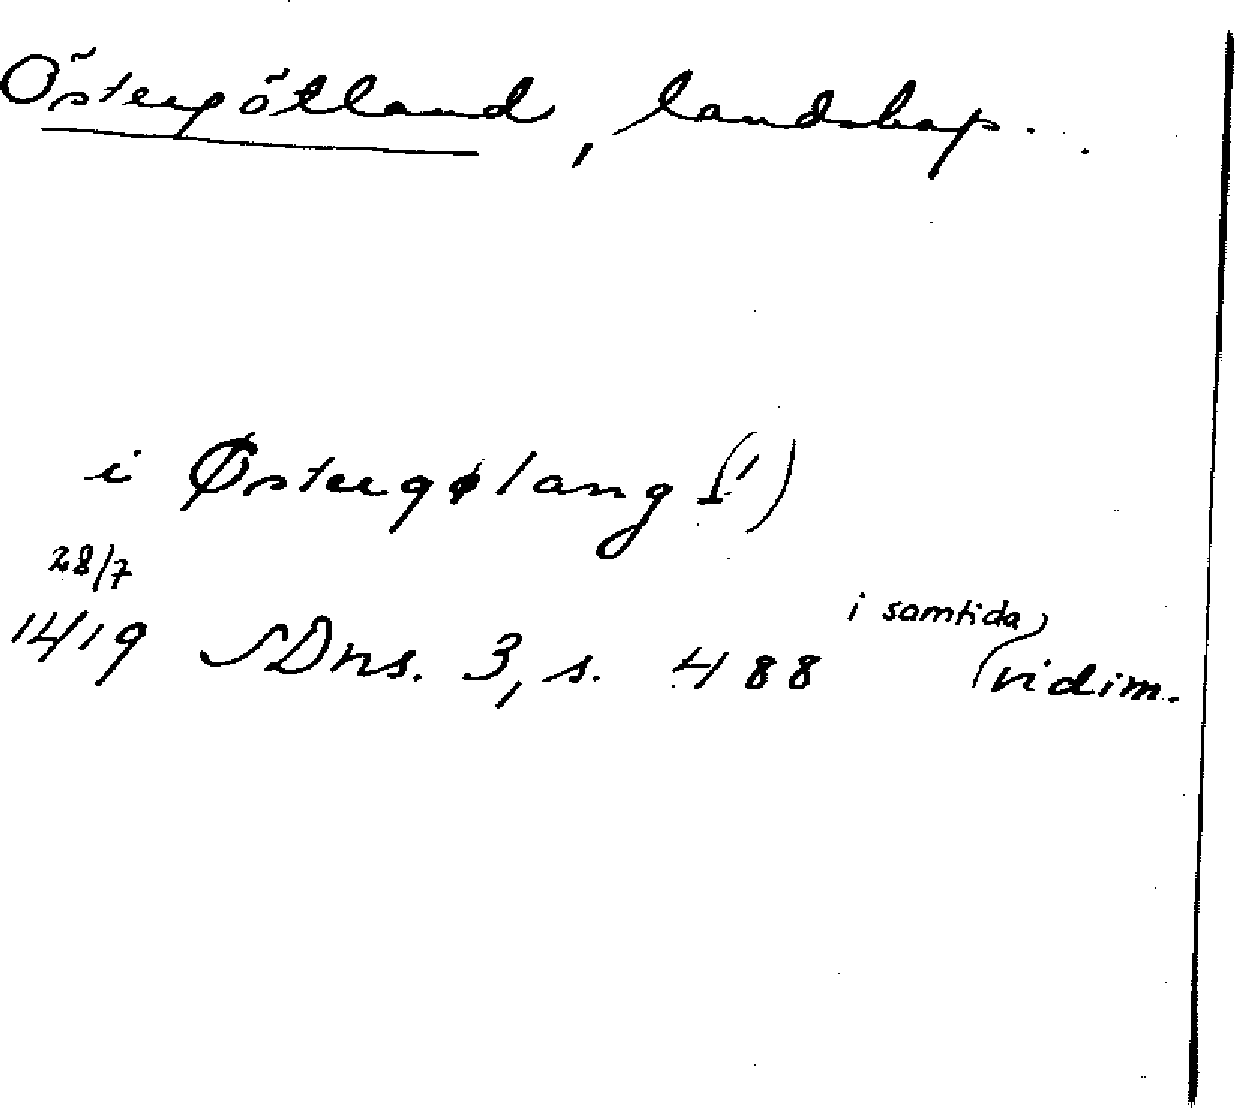 Östergötland, landskap.
i Østergøland (!)
28/7
1419 SDns. 3, s. 488 i samtida vidim.